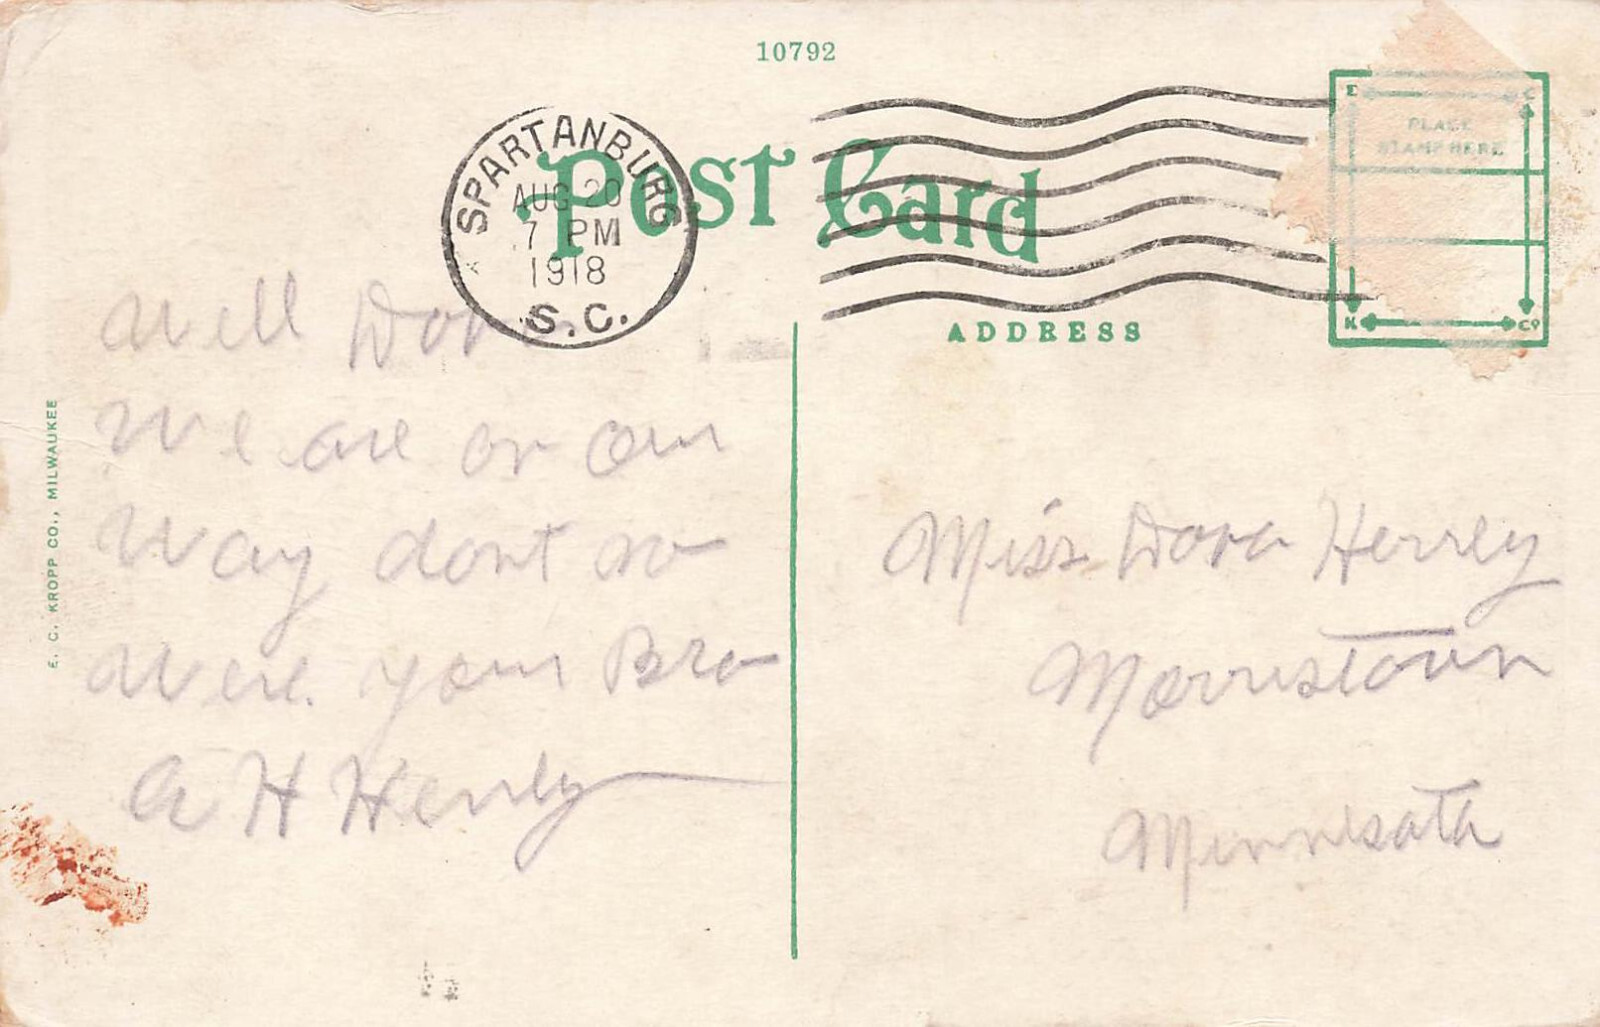 10792
SPARTANBURG
AUG 20
7 PM
1918
S.C.
Post Card
ADDRESS
PLACE
STAMP HERE
E C
K Co
E. C. KROPP CO., MILWAUKEE
Well Dora
We are on our
Way dont no
Were. your Bro
A H Henly
Miss Dora Henley
Morristown
Minnesota